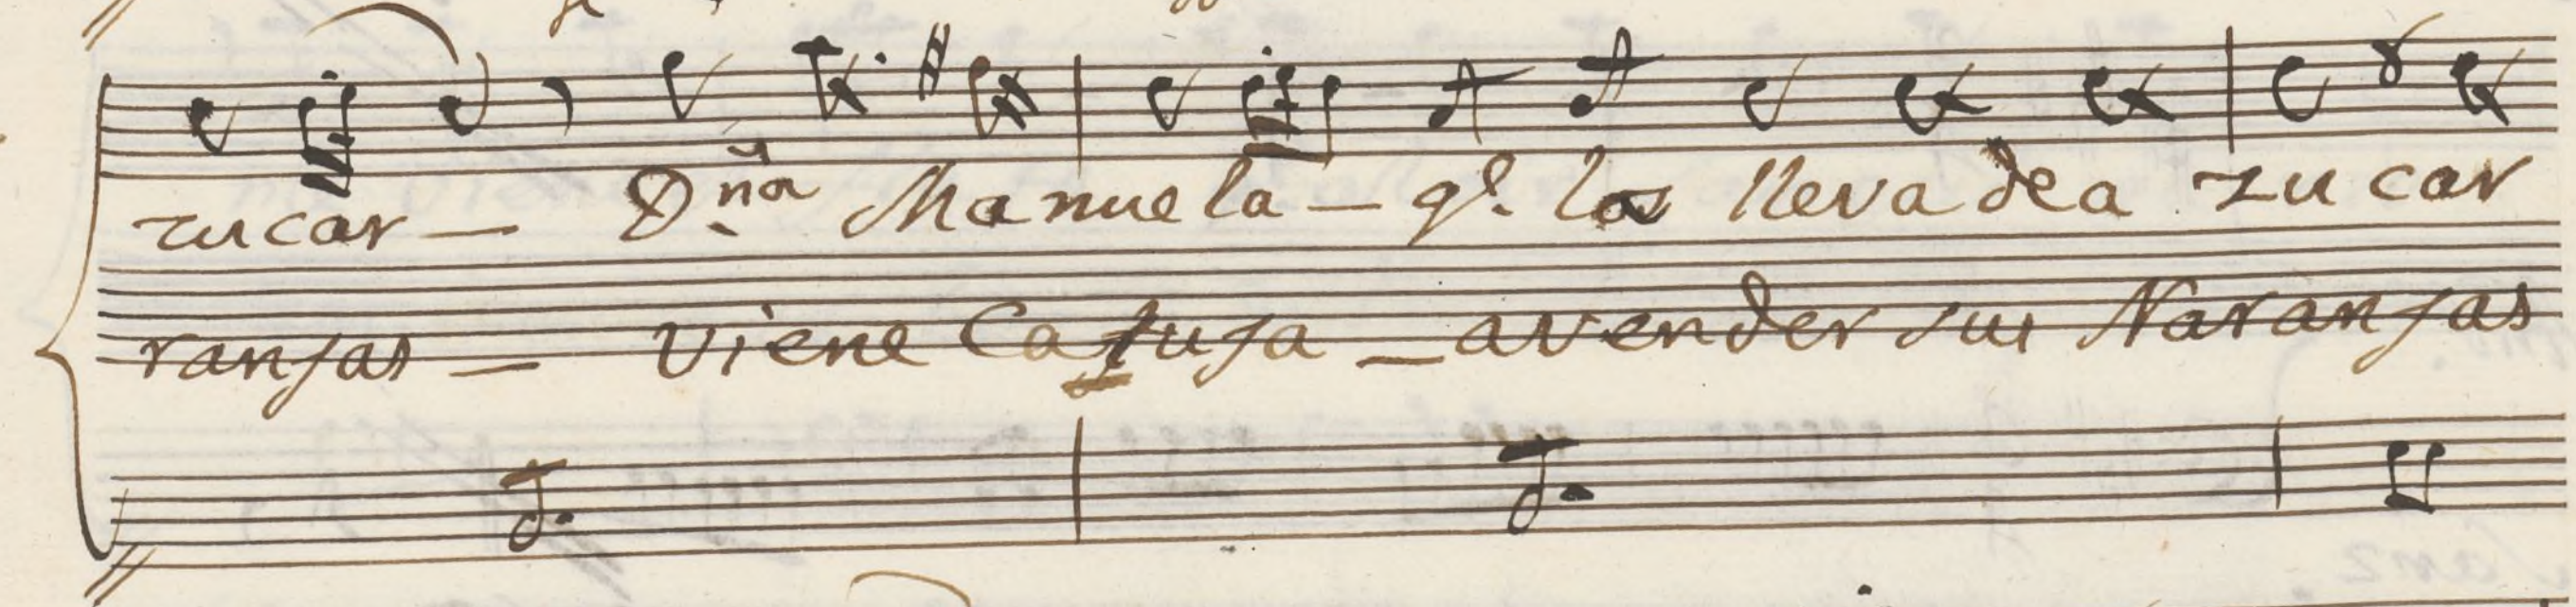 zucar — D.ña Manuela — q.e los lleva de a zucar
ranjas — viene Catuja — a vender sus Naranjas